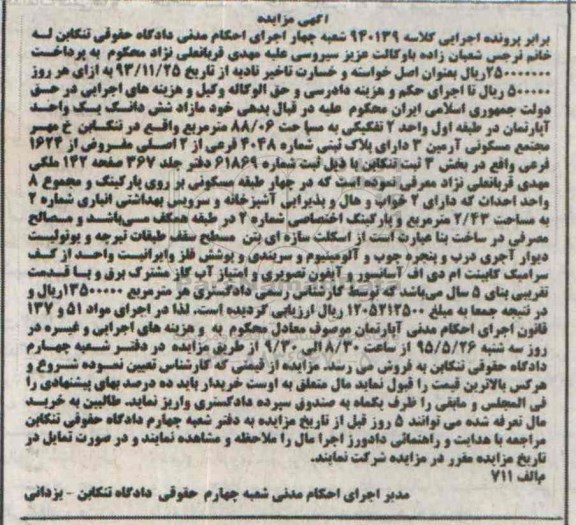 آگهی مزایده
برابر پرونده اجرایی کلاسه ۹۴۰۱۳۹ شعبه چهار اجرای احکام مدنی دادگاه حقوقی تنکابن له
خانم نرجس شعبان زاده باوکالت عزیز سیروسی علیه مهدی قربانعلی نژاد محکوم به پرداخت
۲۵۰۰۰۰۰۰۰ریال بعنوان اصل خواسته و خسارت تاخیر تادیه از تاریخ ۹۳/۱۱/۲۵ به ازای هر روز
۵۰۰۰۰۰ ریال تا اجرای حکم و هزینه دادرسی و حق الوکاله وکیل و هزینه های اجرایی در حق
دولت جمهوری اسلامی ایران محکوم علیه در قبال بدهی خود مازاد شش دانگ یک واحد
آپارتمان در طبقه اول واحد ۲ تفکیکی به مساحت ۸۸/۰۶ مترمربع واقع در تنکابن خ مهر
مجتمع مسکونی آرمین ۳ دارای پلاک ثبتی شماره ۴۰۴۸ فرعی از ۲ اصلی مفروض از ۱۶۲۴
فرعی واقع در بخش ۳ ثبت تنکابن با ذیل ثبت شماره ۶۱۸۶۹ دفتر جلد ۳۶۷ صفحه ۱۴۲ ملکی
مهدی قربانعلی نژاد معرفی نموده است که در چهار طبقه مسکونی بر روی پارکینگ و مجموع ۸
واحد احداث که دارای ۲ خواب و هال و پذیرایی آشپزخانه و سرویس بهداشتی انباری شماره ۲
به مساحت ۲/۴۳ مترمربع و پارکینگ اختصاصی شماره ۲ در طبقه همکف می‌باشد و مصالح
مصرفی در ساخت بنا عبارت است از اسکلت سازه ای بتن مسطح سقف طبقات تیرچه و یونولیت
دیوار آجری درب و پنجره چوب و آلومینیوم و سربندی و پوشش فلز وایرانیت واحد از کف
سرامیک کابینت ام دی اف آسانسور و آیفون تصویری و امتیاز آب گاز مشترک برق و با قدمت
تقریبی بنای ۵ سال می‌باشد که توسط کارشناس رسمی دادگستری هر مترمربع ۱۳۵۰۰۰۰۰ریال و
در نتیجه جمعا به مبلغ ۱۲۰۵۲۱۳۵۰۰ ریال ارزیابی گردیده است. لذا در اجرای مواد ۵۱ و ۱۳۷
قانون اجرای احکام مدنی آپارتمان موصوف معادل محکوم به و هزینه های اجرایی و غیره در
روز سه شنبه ۹۵/۵/۲۶ از ساعت ۸/۳۰ الی ۹/۳۰ از طریق مزایده در دفتر شعبه چهارم
دادگاه حقوقی تنکابن به فروش می رسد. مزایده از قیمتی که کارشناس تعیین نموده شروع و
هرکس بالاترین قیمت را قبول نماید مال متعلق به اوست خریدار باید ده درصد بهای پیشنهادی را
فی المجلس و مابقی را ظرف یکماه به صندوق سپرده دادگستری واریز نماید. طالبین به خرید
مال تعرفه شده می توانند ۵ روز قبل از تاریخ مزایده به دفتر شعبه چهارم دادگاه حقوقی تنکابن
مراجعه با هدایت و راهنمائی دادورز اجرا مال را ملاحظه و مشاهده نمایند و در صورت تمایل در
تاریخ مزایده مقرر در مزایده شرکت نمایند.
م/الف ۷۱۱
مدیر اجرای احکام مدنی شعبه چهارم حقوقی دادگاه تنکابن - یزدانی